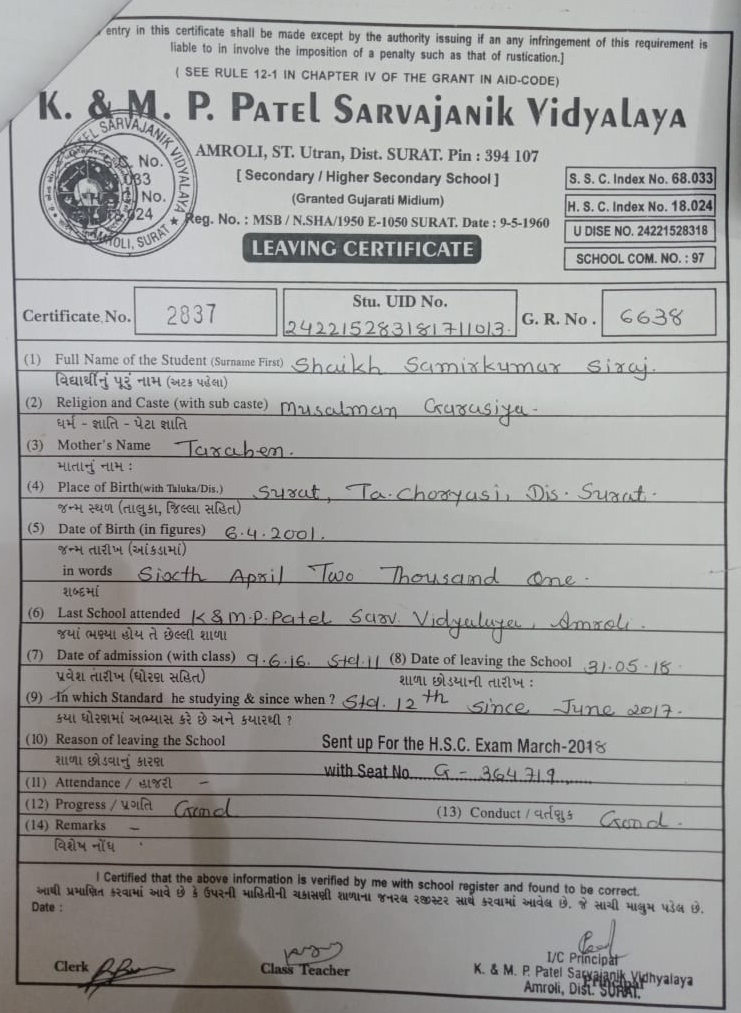 entry in this certificate shall be made except by the authority issuing if an any infringement of this requirement is
liable to in involve the imposition of a penalty such as that of rustication.]
( SEE RULE 12-1 IN CHAPTER IV OF THE GRANT IN AID-CODE)
K. & M. P. PATEL SARVAJANIK VIDYALAYA
AMROLI, ST. Utran, Dist. SURAT. Pin : 394 107
[ Secondary / Higher Secondary School ]
(Granted Gujarati Midium)
Reg. No. : MSB / N.SHA/1950 E-1050 SURAT. Date : 9-5-1960
LEAVING CERTIFICATE
PATEL SARVAJANIK VIDYALAYA
AMROLI, SURAT ★
S. S. C. Index No. 68.033
H. S. C. Index No. 18.024
U DISE NO. 24221528318
SCHOOL COM. NO. : 97
Certificate No. 2837
Stu. UID No.
242215283181711013.
G. R. No. 6638
(1) Full Name of the Student (Surname First) Shaikh Samirkumar Siraj.
વિદ્યાર્થીનું પૂરું નામ (અટક પહેલા)
(2) Religion and Caste (with sub caste) Musalman Garasiya-
ધર્મ - જ્ઞાતિ - પેટા જ્ઞાતિ
(3) Mother's Name Taraben.
માતાનું નામ :
(4) Place of Birth(with Taluka/Dis.) Surat, Ta-Choryasi, Dis-Surat-
જન્મ સ્થળ (તાલુકા, જિલ્લા સહિત)
(5) Date of Birth (in figures) 6.4.2001.
જન્મ તારીખ (આંકડામાં)
in words Sixth April Two Thousand One.
શબ્દમાં
(6) Last School attended K&M.P.Patel Sarv. Vidyaluya, Amroli.
જયાં ભણ્યા હોય તે છેલ્લી શાળા
(7) Date of admission (with class) 9.6.16. Std.11 (8) Date of leaving the School 31.05.18.
પ્રવેશ તારીખ (ધોરણ સહિત) શાળા છોડયાની તારીખ :
(9) In which Standard he studying & since when ? Std. 12th since June 2017.
કયા ધોરણમાં અભ્યાસ કરે છે અને કયારથી ?
(10) Reason of leaving the School Sent up For the H.S.C. Exam March-2018
શાળા છોડવાનું કારણ with Seat No. G-364719
(11) Attendance / હાજરી –
(12) Progress / પ્રગતિ Good (13) Conduct / વર્તણુક Good.
(14) Remarks –
વિશેષ નોંધ
I Certified that the above information is verified by me with school register and found to be correct.
આથી પ્રમાણિત કરવામાં આવે છે કે ઉપરની માહિતીની ચકાસણી શાળાના જનરલ રજીસ્ટર સાથે કરવામાં આવેલ છે. જે સાચી માલુમ પડેલ છે.
Date :
Clerk
Class Teacher
I/C Principal
K. & M. P. Patel Sarvajanik Vidhyalaya
Principal
Amroli, Dist. SURAT.